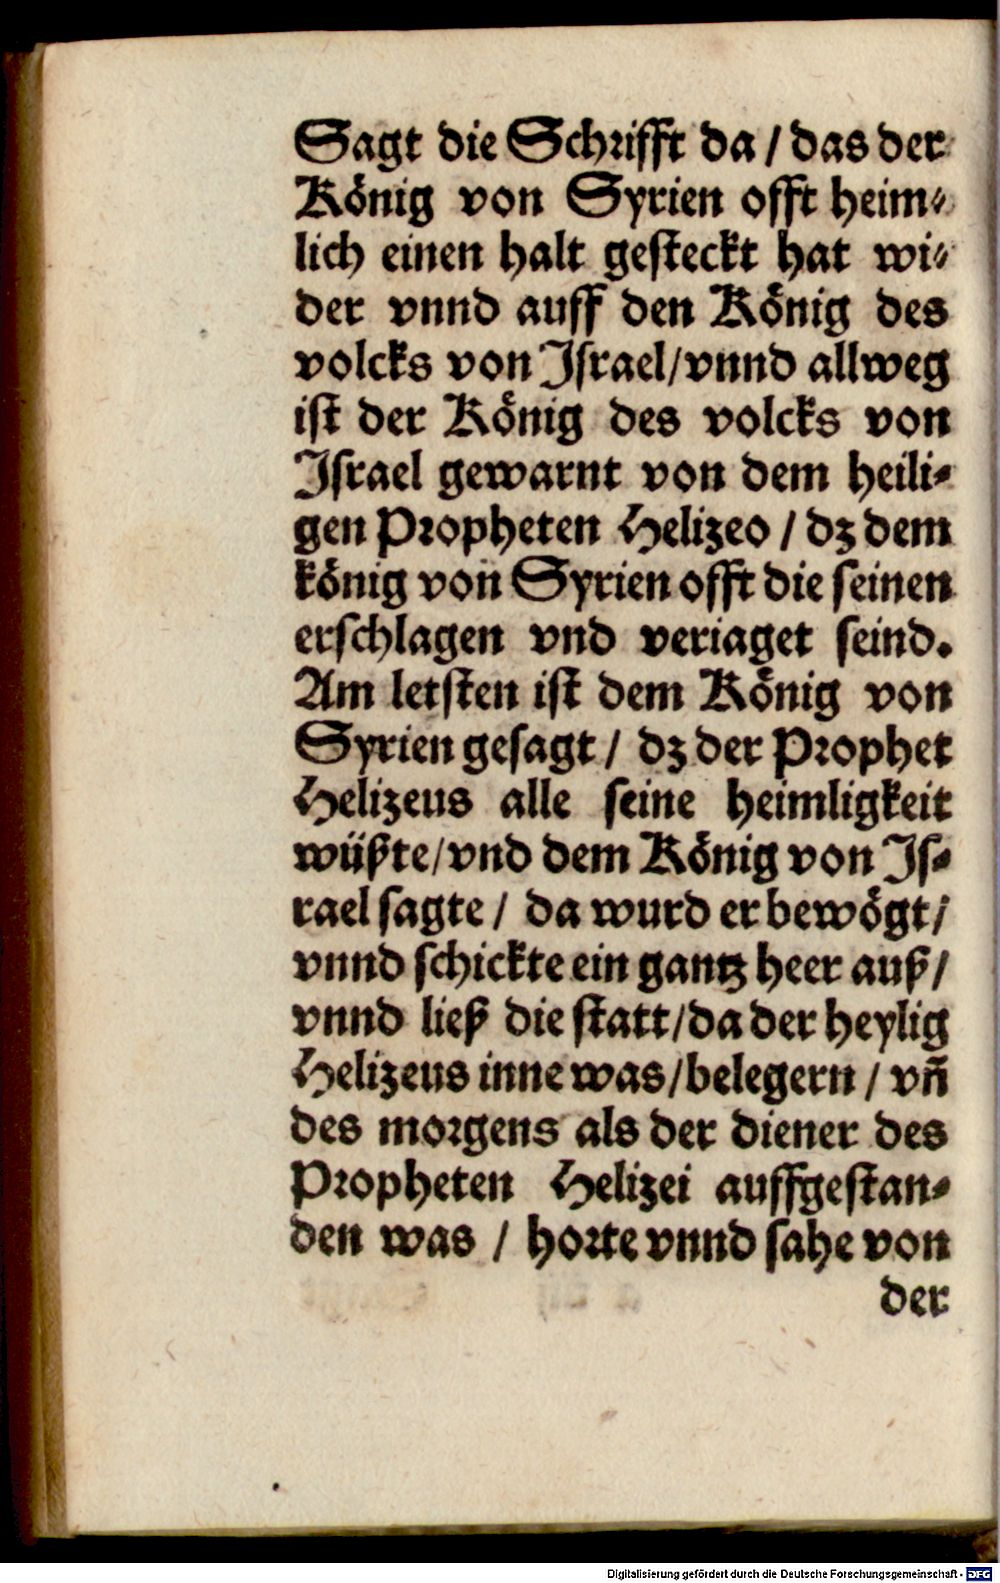 Sagt die Schrifft da / das der
König von Syrien offt heim⸗
lich einen halt gesteckt hat wi⸗
der vnnd auff den König des
volcks von Israel/vnnd allweg
ist der König des volcks von
Israel gewarnt von dem heili⸗
gen Propheten Helizeo / dz dem
könig von Syrien offt die seinen
erschlagen vnd veriaget seind.
Am letsten ist dem König von
Syrien gesagt / dz der Prophet
Helizeus alle seine heimligkeit
wüßte/vnd dem König von Is⸗
rael sagte / da wurd er bewögt/
vnnd schickte ein gantz heer auß/
vnnd ließ die statt/da der heylig
Helizeus inne was/belegern / vñ
des morgens als der diener des
Propheten Helizei auffgestan⸗
den was / horte vnnd sahe von
der
Digitalisierung gefördert durch die Deutsche Forschungsgemeinschaft - DFG